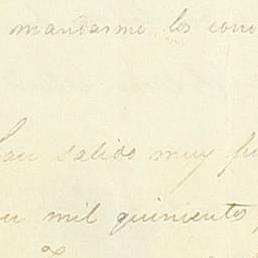 mandarme los cono
han salido muy
mil quinientos